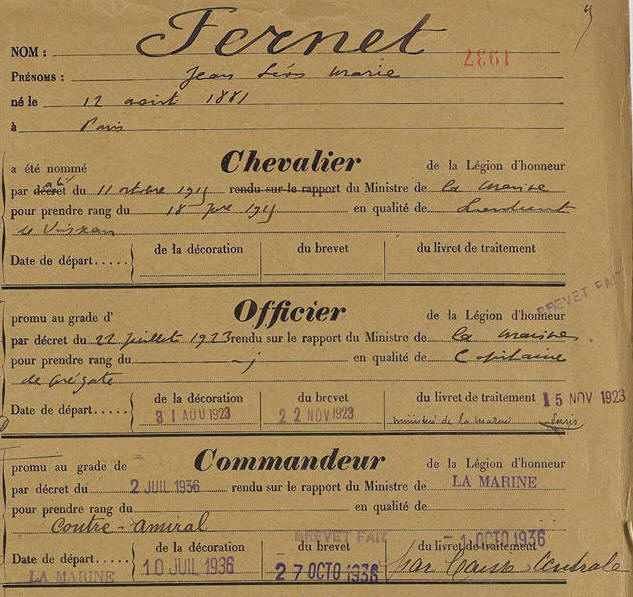 NOM : Fernet
1937
PRÉNOMS : Jean Léon Marie
né le 12 août 1881
à Paris
a été nommé Chevalier de la Légion d'honneur
par décret du 11 octobre 1915 rendu sur le rapport du Ministre de la Marine
pour prendre rang du 18 en qualité de Lieutenant
de Vaisseau
Date de départ..... de la décoration du brevet du livret de traitement
BREVET FAIT
promu au grade d' Officier de la Légion d'honneur
par décret du 22 juillet 1923 rendu sur le rapport du Ministre de la Marine
pour prendre rang du en qualité de Capitaine
de frégate
Date de départ..... de la décoration du brevet du livret de traitement 15 NOV 1923
31 AOU 1923 22 NOV 1923 ministère de la Marine Paris
promu au grade de Commandeur de la Légion d'honneur
par décret du 2 JUIL 1936 rendu sur le rapport du Ministre de LA MARINE
pour prendre rang du en qualité de
Contre-amiral
BREVET FAIT
Date de départ..... de la décoration du brevet du livret de traitement 1 OCTO 1936
LA MARINE 10 JUIL 1936 27 OCTO 1936 par Caisse Centrale